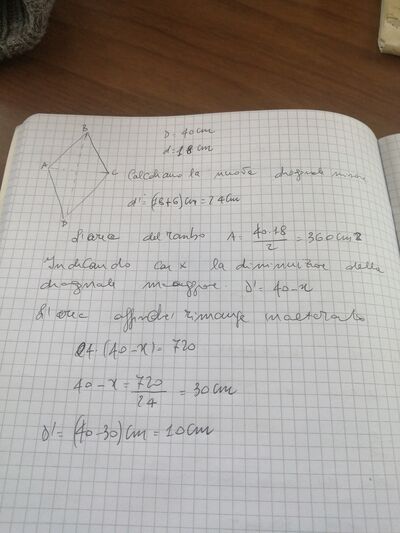 B
D = 40 cm
d = 18 cm
A
C
Calcoliamo la nuova diagonale minore
d' = (18+6) cm = 24 cm
D
L'area del rombo A = 40·18/2 = 360 cm2
Indicando con x la diminuzione della
diagonale maggiore D' = 40-x
L'area affinché rimanga inalterata
24·(40-x) = 720
40-x = 720/24 = 30 cm
D' = (40-30) cm = 10 cm